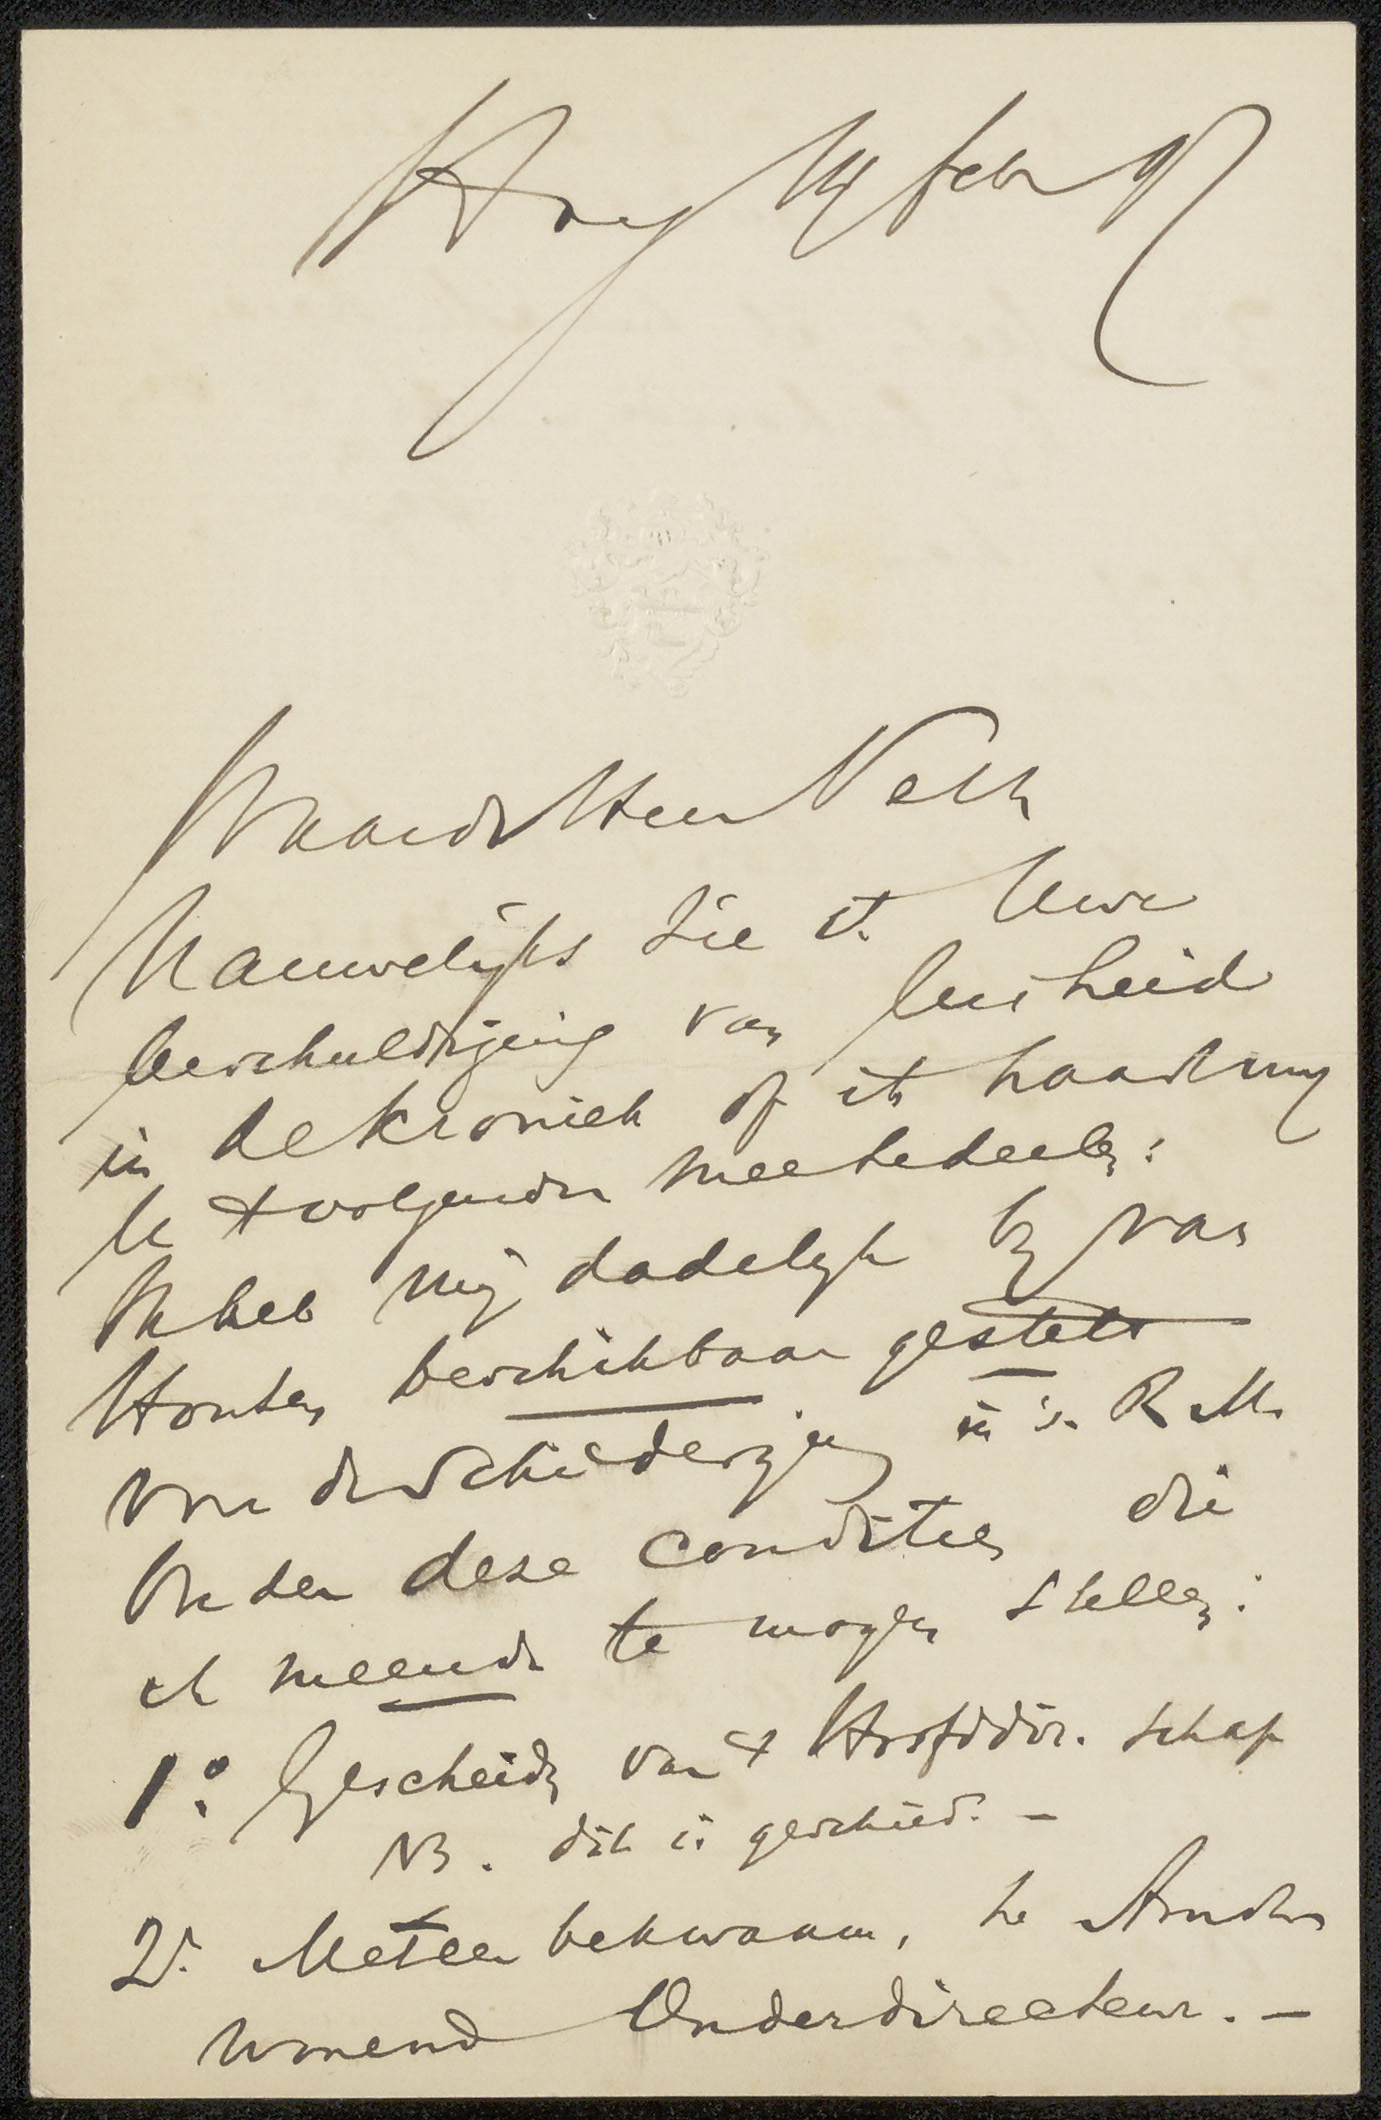 Haag 14 febr 97
Waarde Heer Veth
Nauwelijks zie ik Uwe
beschuldiging van lusheid
in de Kroniek of ik haast mij
U 't volgende meetedeelen:
Ik heb mij dadelijk by van
Houten beschikbaar gesteld
voor de Schilderijen in 's R. M.
Onder deze condities die
ik meende te mogen stellen:
1º. Gescheiden van 't Hoofddir. schap
NB. dit is geschied. —
2º. Met een bekwaam, te Amstdm
wonend Onderdirecteur. —